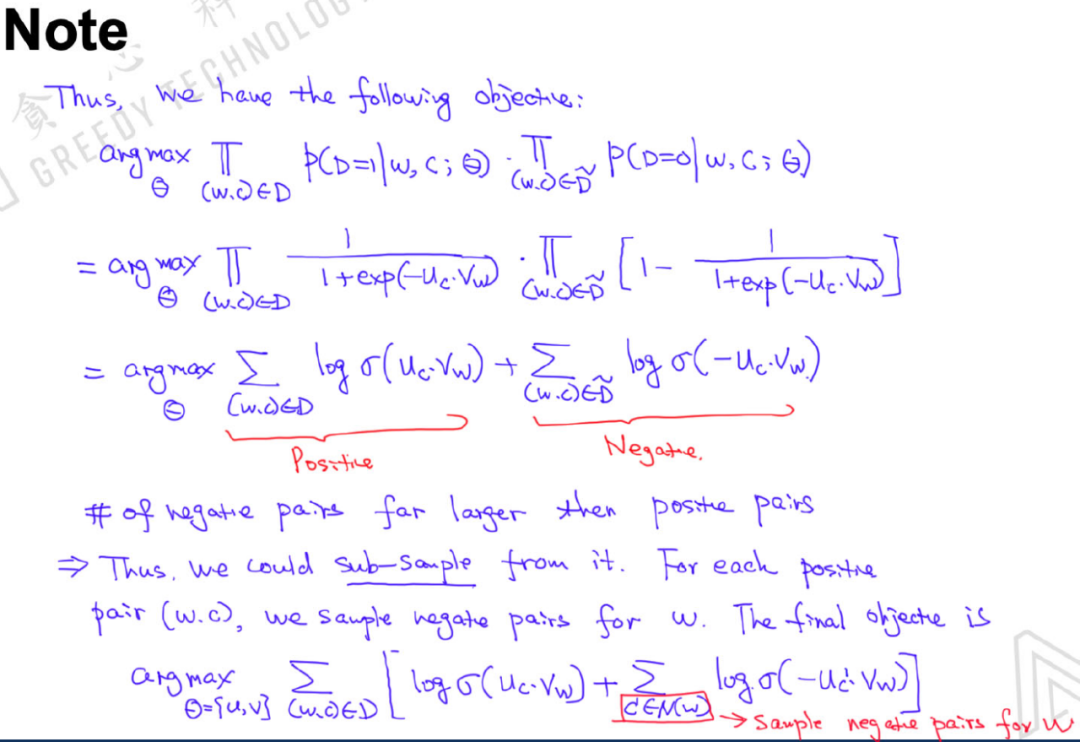 Note
貪心科
GREEDY TECHNOLOG
Thus, we have the following objective:
argmax_Θ ∏_{(w,c)∈D} p(D=1|w, c; Θ) · ∏_{(w,c)∈D̃} p(D=0|w, c; Θ)
= argmax_Θ ∏_{(w,c)∈D} 1/(1+exp(-U_c·V_w)) · ∏_{(w,c)∈D̃} [1 - 1/(1+exp(-U_c·V_w))]
= argmax_Θ ∑_{(w,c)∈D} log σ(U_c·V_w) + ∑_{(w,c)∈D̃} log σ(-U_c·V_w)
Positive Negative.
# of negative pairs far larger then positive pairs
⇒ Thus, we could sub-sample from it. For each positive
pair (w.c), we sample negative pairs for w. The final objective is
argmax_{Θ={u,v}} ∑_{(w,c)∈D} [log σ(U_c·V_w) + ∑_{c'∈N(w)} log σ(-U_c'·V_w)]
→ sample negative pairs for w